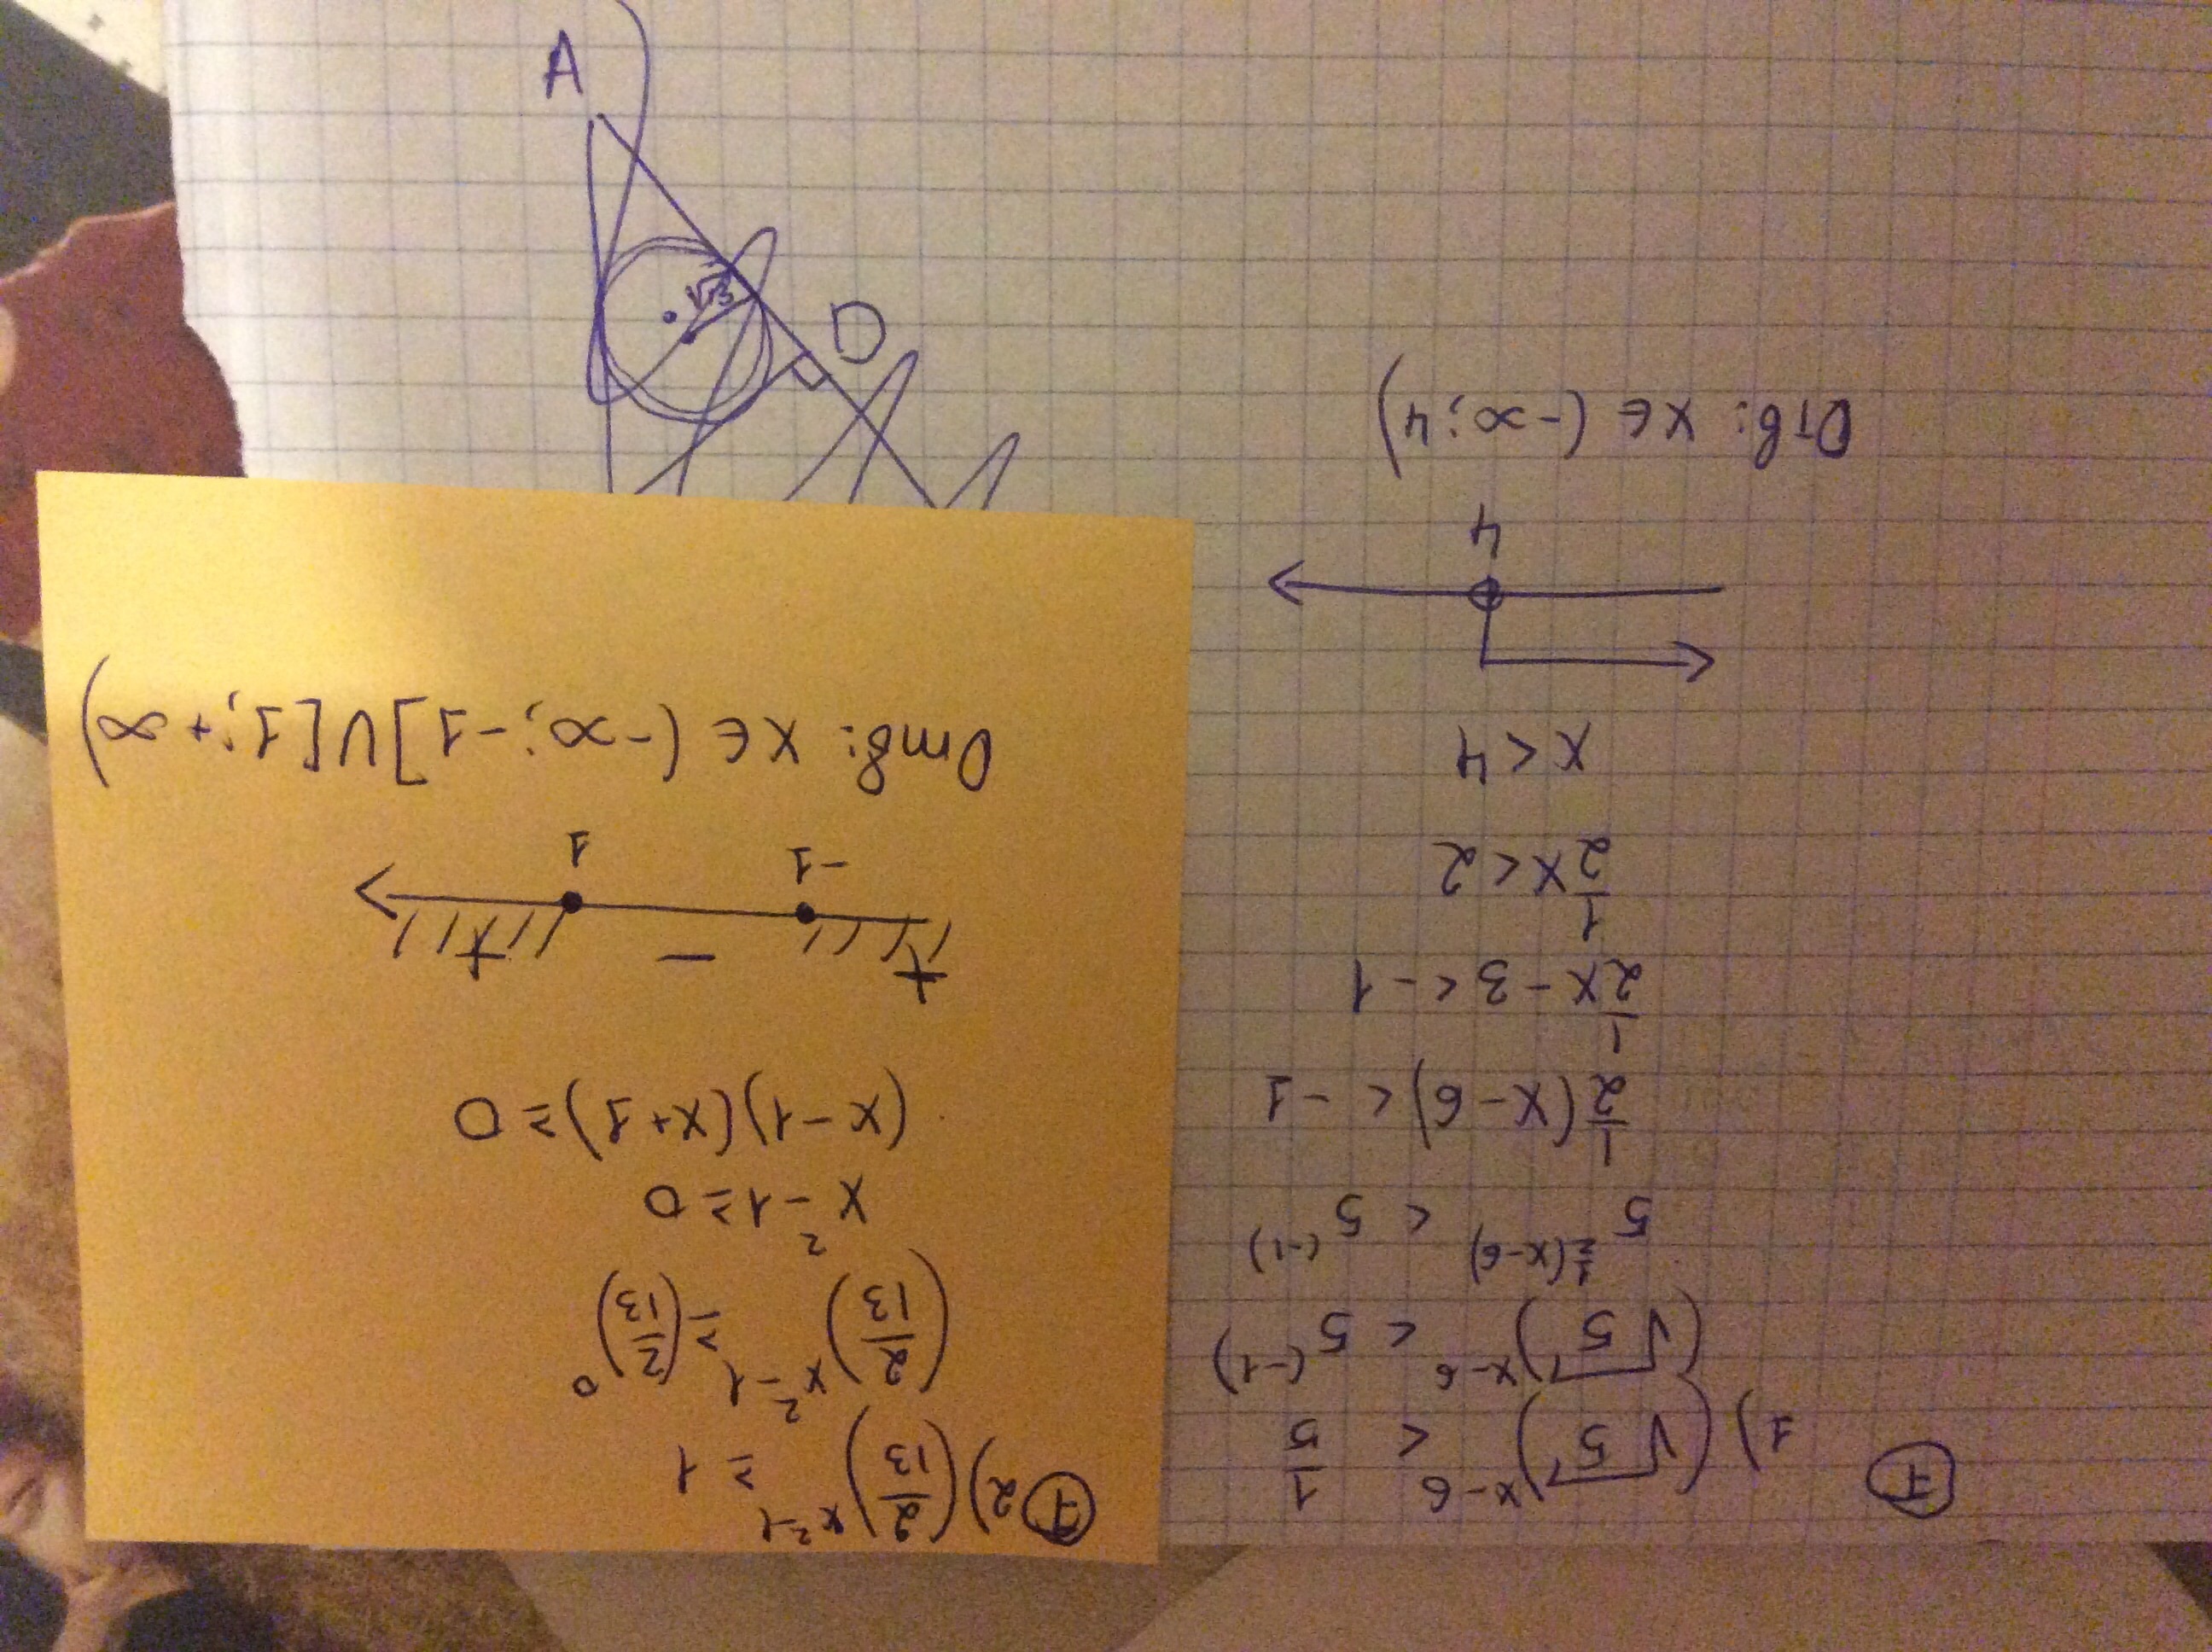 ⑦
1) (√5)^(x-6) < 1/5
(√5)^(x-6) < 5^(-1)
5^(1/2(x-6)) < 5^(-1)
1/2(x-6) < -1
1/2x - 3 < -1
1/2x < 2
x < 4
4
Отв: x ∈ (-∞; 4)
⑦ 2) (2/13)^(x²-1) ≥ 1
(2/13)^(x²-1) ≥ (2/13)^0
x² - 1 ≥ 0
(x-1)(x+1) ≥ 0
+ - +
-1 1
Отв: x ∈ (-∞; -1] U [1; +∞)
A
D